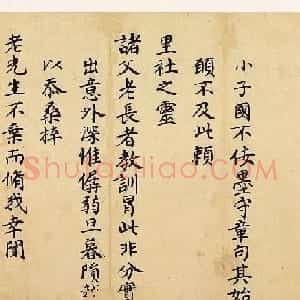 小子國不佞墨守章句其始
頭不及此賴
里社之靈
諸父老長者教訓冐此非分實
出意外深惟僝弱旦暮隕越
以忝桑梓
老先生不棄而惰我幸聞
Shufaziliao.com